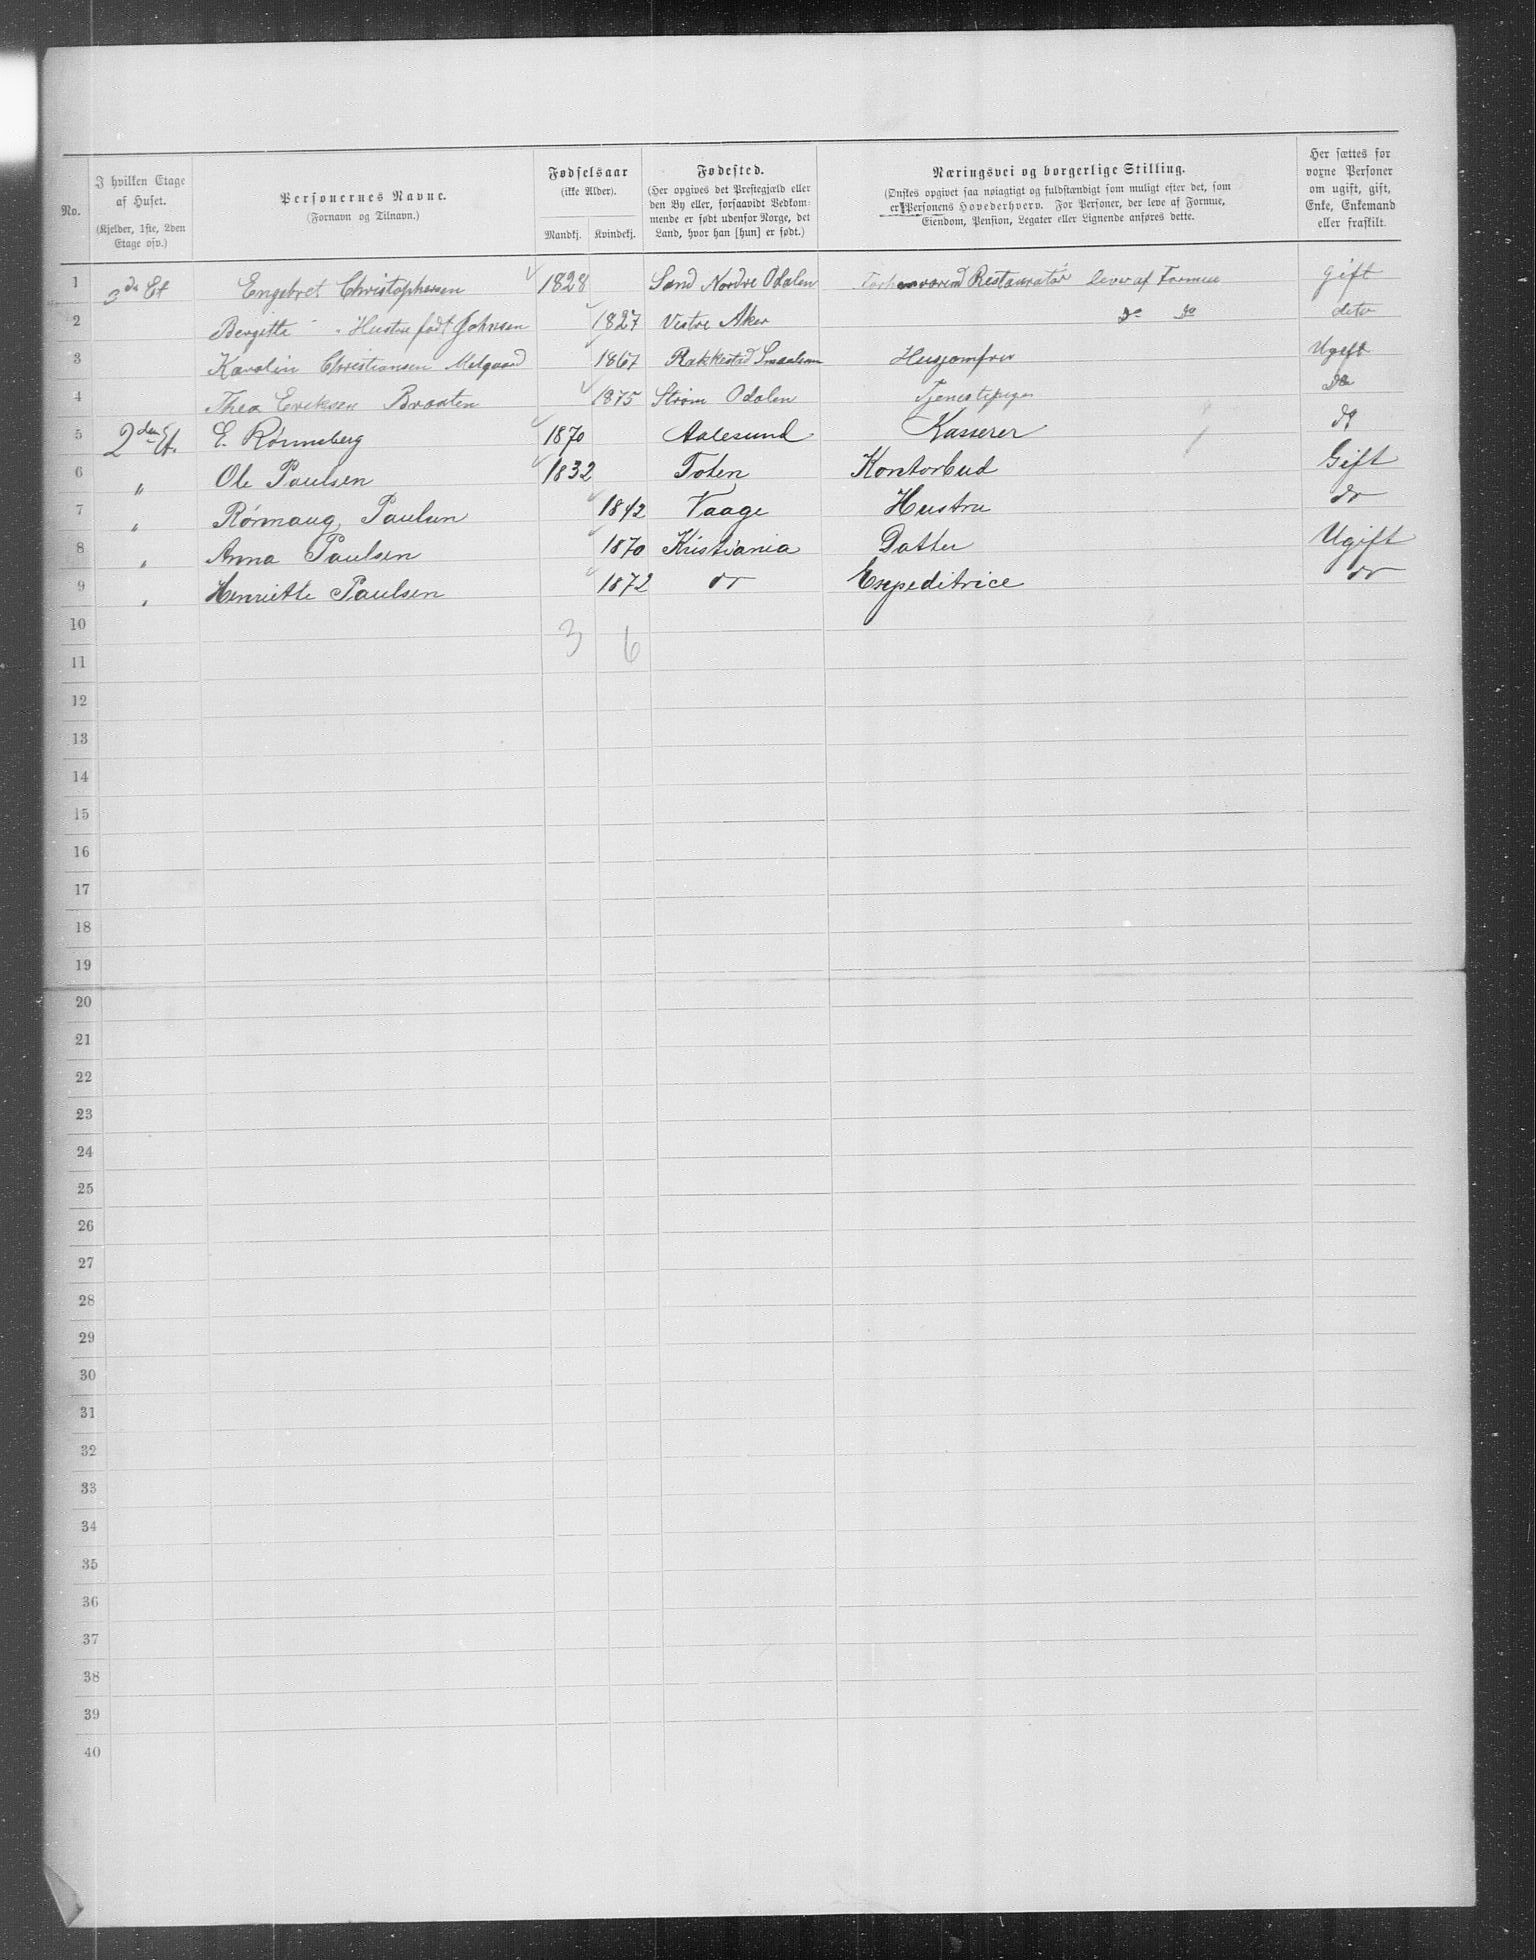 No.
I hvilken Etage
af Huset.
(Kjelder, 1ste, 2den
Etage osv.)
Personernes Navne.
(Fornavn og Tilnavn.)
Fødselsaar
(ikke Alder).
Mandkj. Kvindekj.
Fødested.
(Her opgives det Prestegjæld eller
den By eller, forsaavidt Vedkom-
mende er født udenfor Norge, det
Land, hvor han [hun] er født.)
Næringsvei og borgerlige Stilling.
(Ønskes opgivet saa nøiagtigt og fuldstændigt som muligt efter det, som
er Personens Hovederhverv. For Personer, der leve af Formue,
Eiendom, Pension, Legater eller Lignende anføres dette.
Her sættes for
voxne Personer
om ugift, gift,
Enke, Enkemand
eller fraskilt.
1 3de Et Engebret Christophersen 1828 Sand Nordre Odalen Forhenværend Restauratør lever af Formue Gift
2 Bergitte " Hustru født Johnsen 1827 Vestre Aker Do Do dito
3 Karolin Christiansen Melgaard 1867 Rakkestad Smaalenen Husjomfru Ugift
4 Thea Eriksen Braaten 1875 Strøm Odalen Tjenestepige Do
5 2den Et. E. Rønneberg 1870 Aalesund Kasserer do
6 " Ole Paulsen 1832 Toten Kontorbud Gift
7 " Rønnaug Paulsen 1842 Vaage Hustru do
8 " Anna Paulsen 1870 Kristiania Datter Ugift
9 " Henriette Paulsen 1872 do Expeditrice do
10 3 6
11
12
13
14
15
16
17
18
19
20
21
22
23
24
25
26
27
28
29
30
31
32
33
34
35
36
37
38
39
40